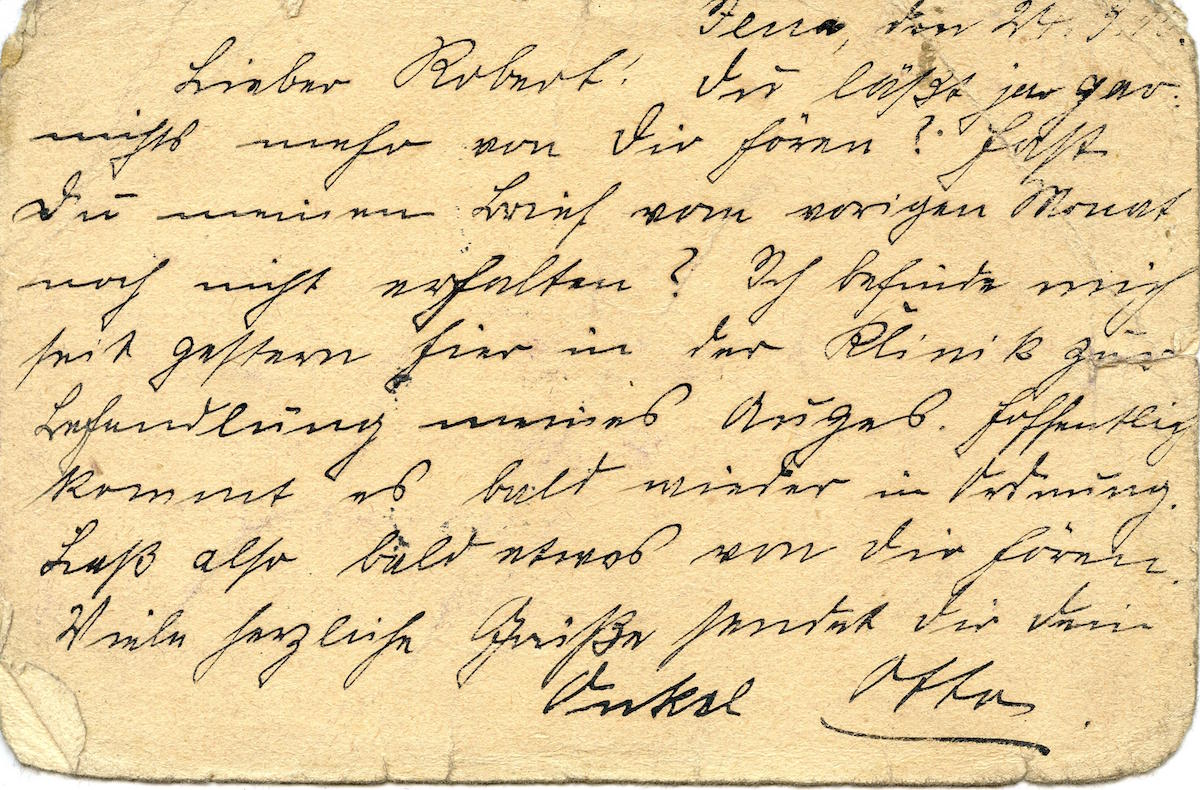 Jena, den 24. 9.
Lieber Robert! Du läßt ja gar-
nichts mehr von Dir hören? Hast
Du meinen Brief vom vorigen Monat
noch nicht erhalten? Ich befinde mich
seit gestern hier in der Klinik zur
Behandlung meines Auges. Hoffentlich
kommt es bald wieder in Ordnung.
Laß also bald etwas von dir hören.
Viele herzliche Grüße sendet dir dein
Onkel Otto.